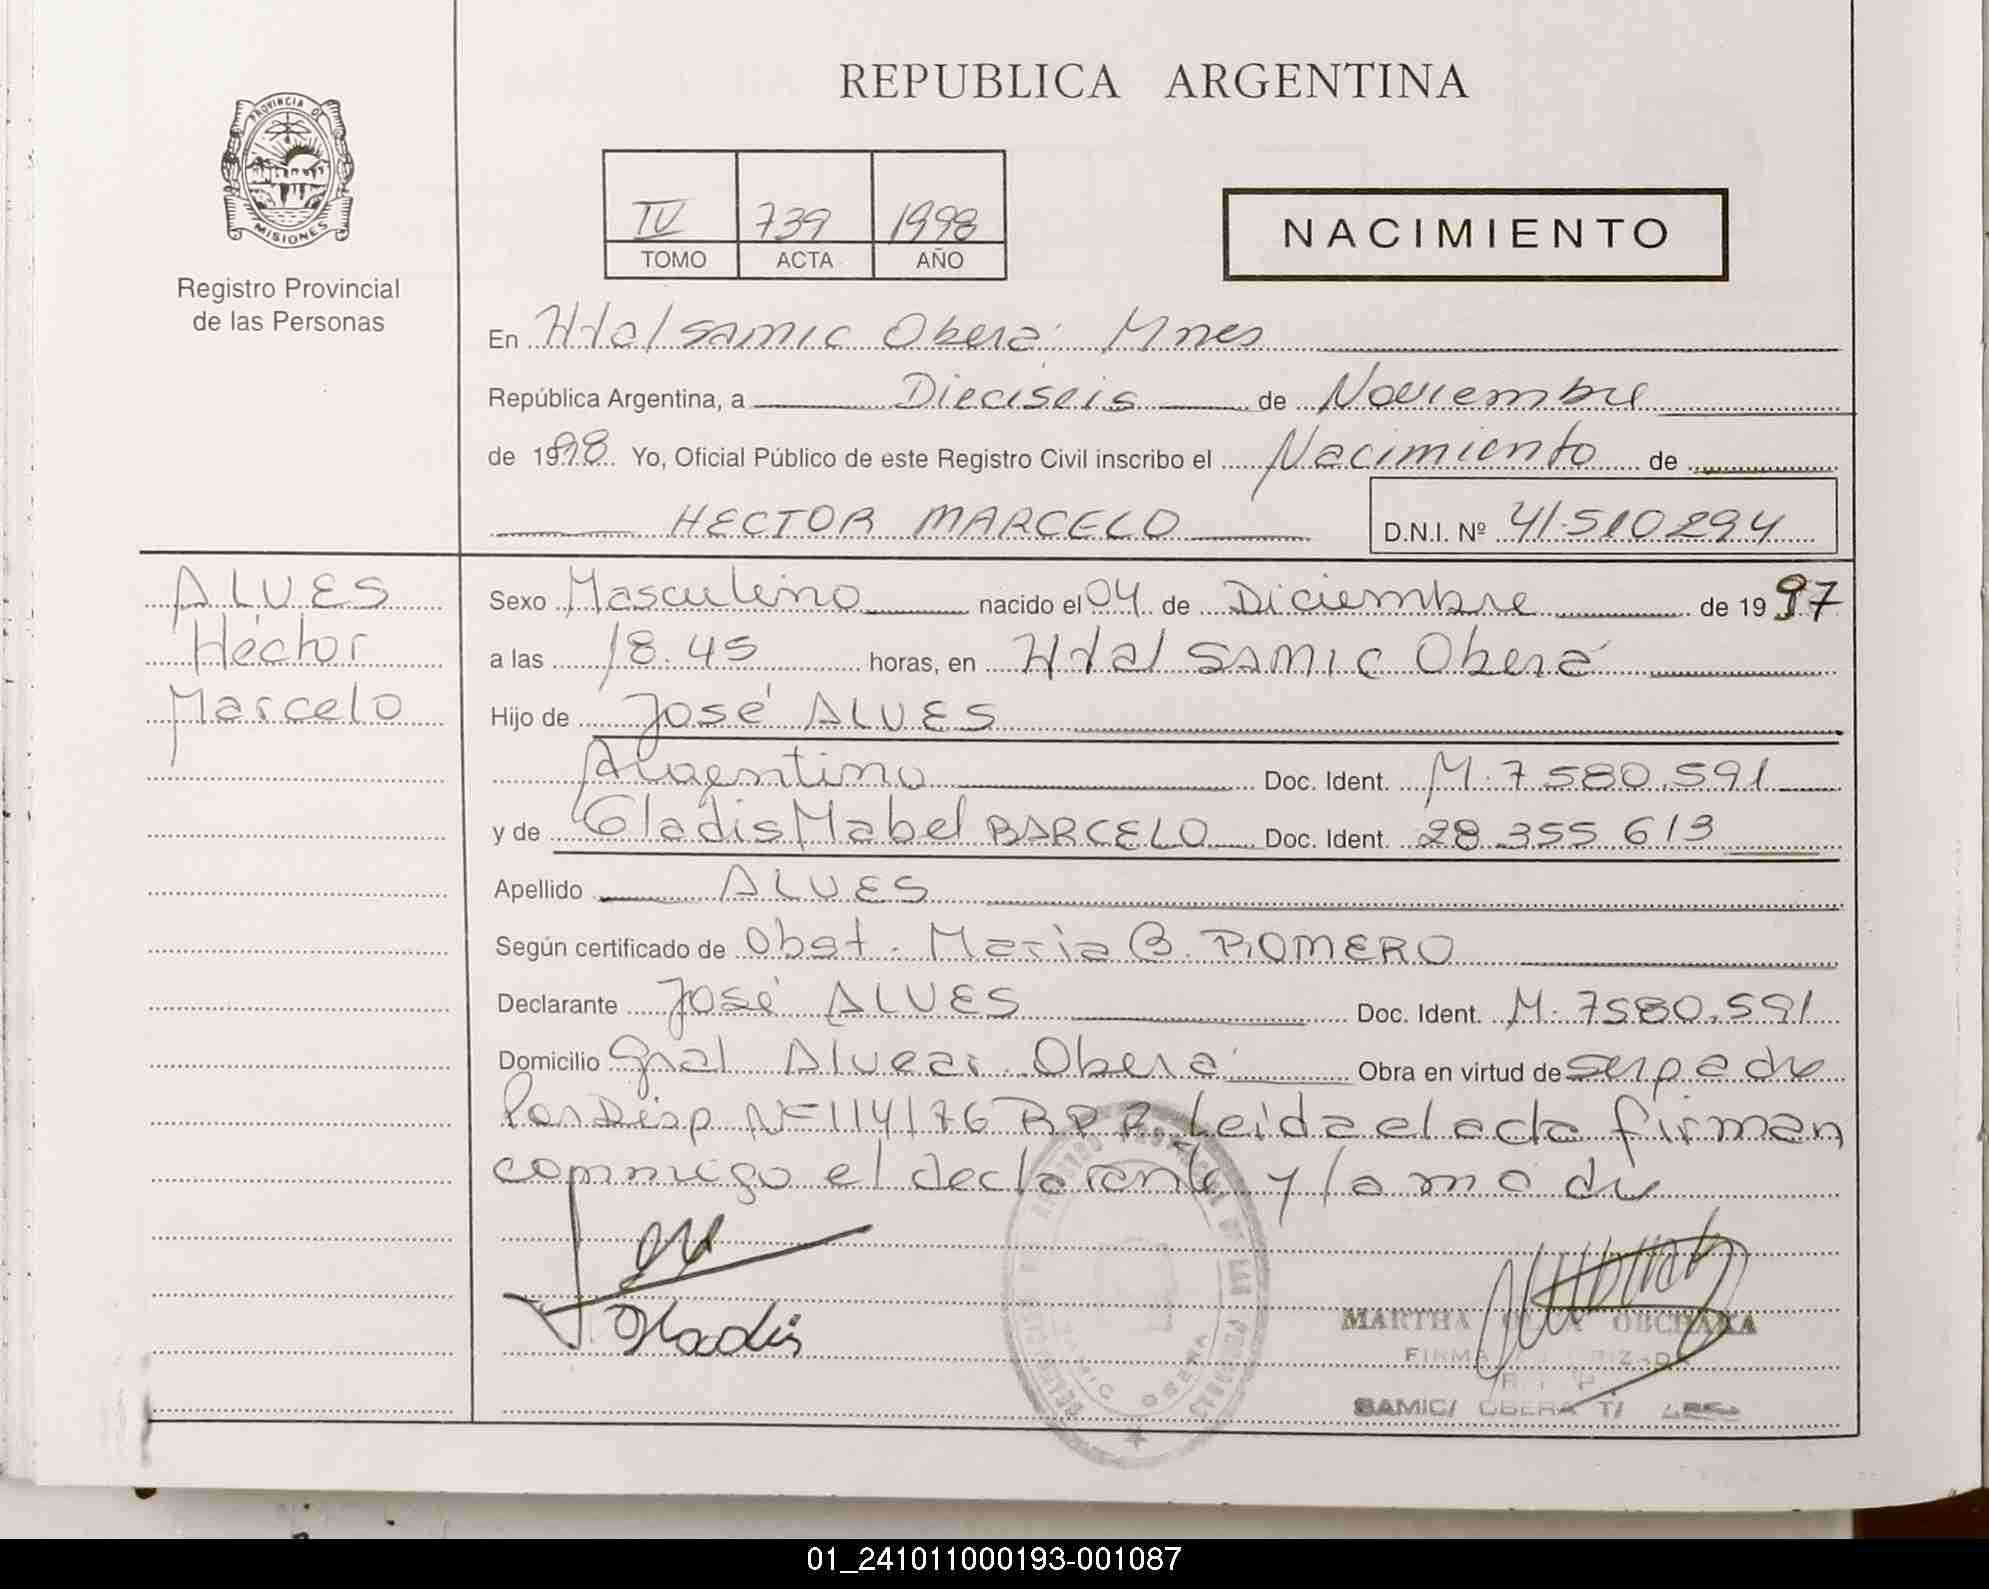 REPUBLICA ARGENTINA
PROVINCIA DE
MISIONES
Registro Provincial
de las Personas
IV 739 1998
TOMO ACTA AÑO
NACIMIENTO
En Htal Samic Oberá Mnes
República Argentina, a Dieciseis de Noviembre
de 1998 Yo, Oficial Público de este Registro Civil inscribo el Nacimiento de
HECTOR MARCELO D.N.I. Nº 41.510.294
ALVES
Héctor
Marcelo
Sexo Masculino nacido el 04 de Diciembre de 1997
a las 18.45 horas, en Htal SAMIC Oberá
Hijo de José ALVES
Argentino Doc. Ident. M. 7.580.591
y de Gladis Mabel BARCELO Doc. Ident. 28.355.613
Apellido ALVES
Según certificado de Obst. Maria B. ROMERO
Declarante José ALVES Doc. Ident. M. 7580.591
Domicilio Gral Alvear Oberá Obra en virtud de ser padre
Por Disp Nº 114/76 RPP. Leida el acta firman
conmigo el declarante y la madre
Gladis
MARTHA OLGA OBCHAKA
FIRMA AUTORIZADA
SAMIC/ OBERA
01_241011000193-001087